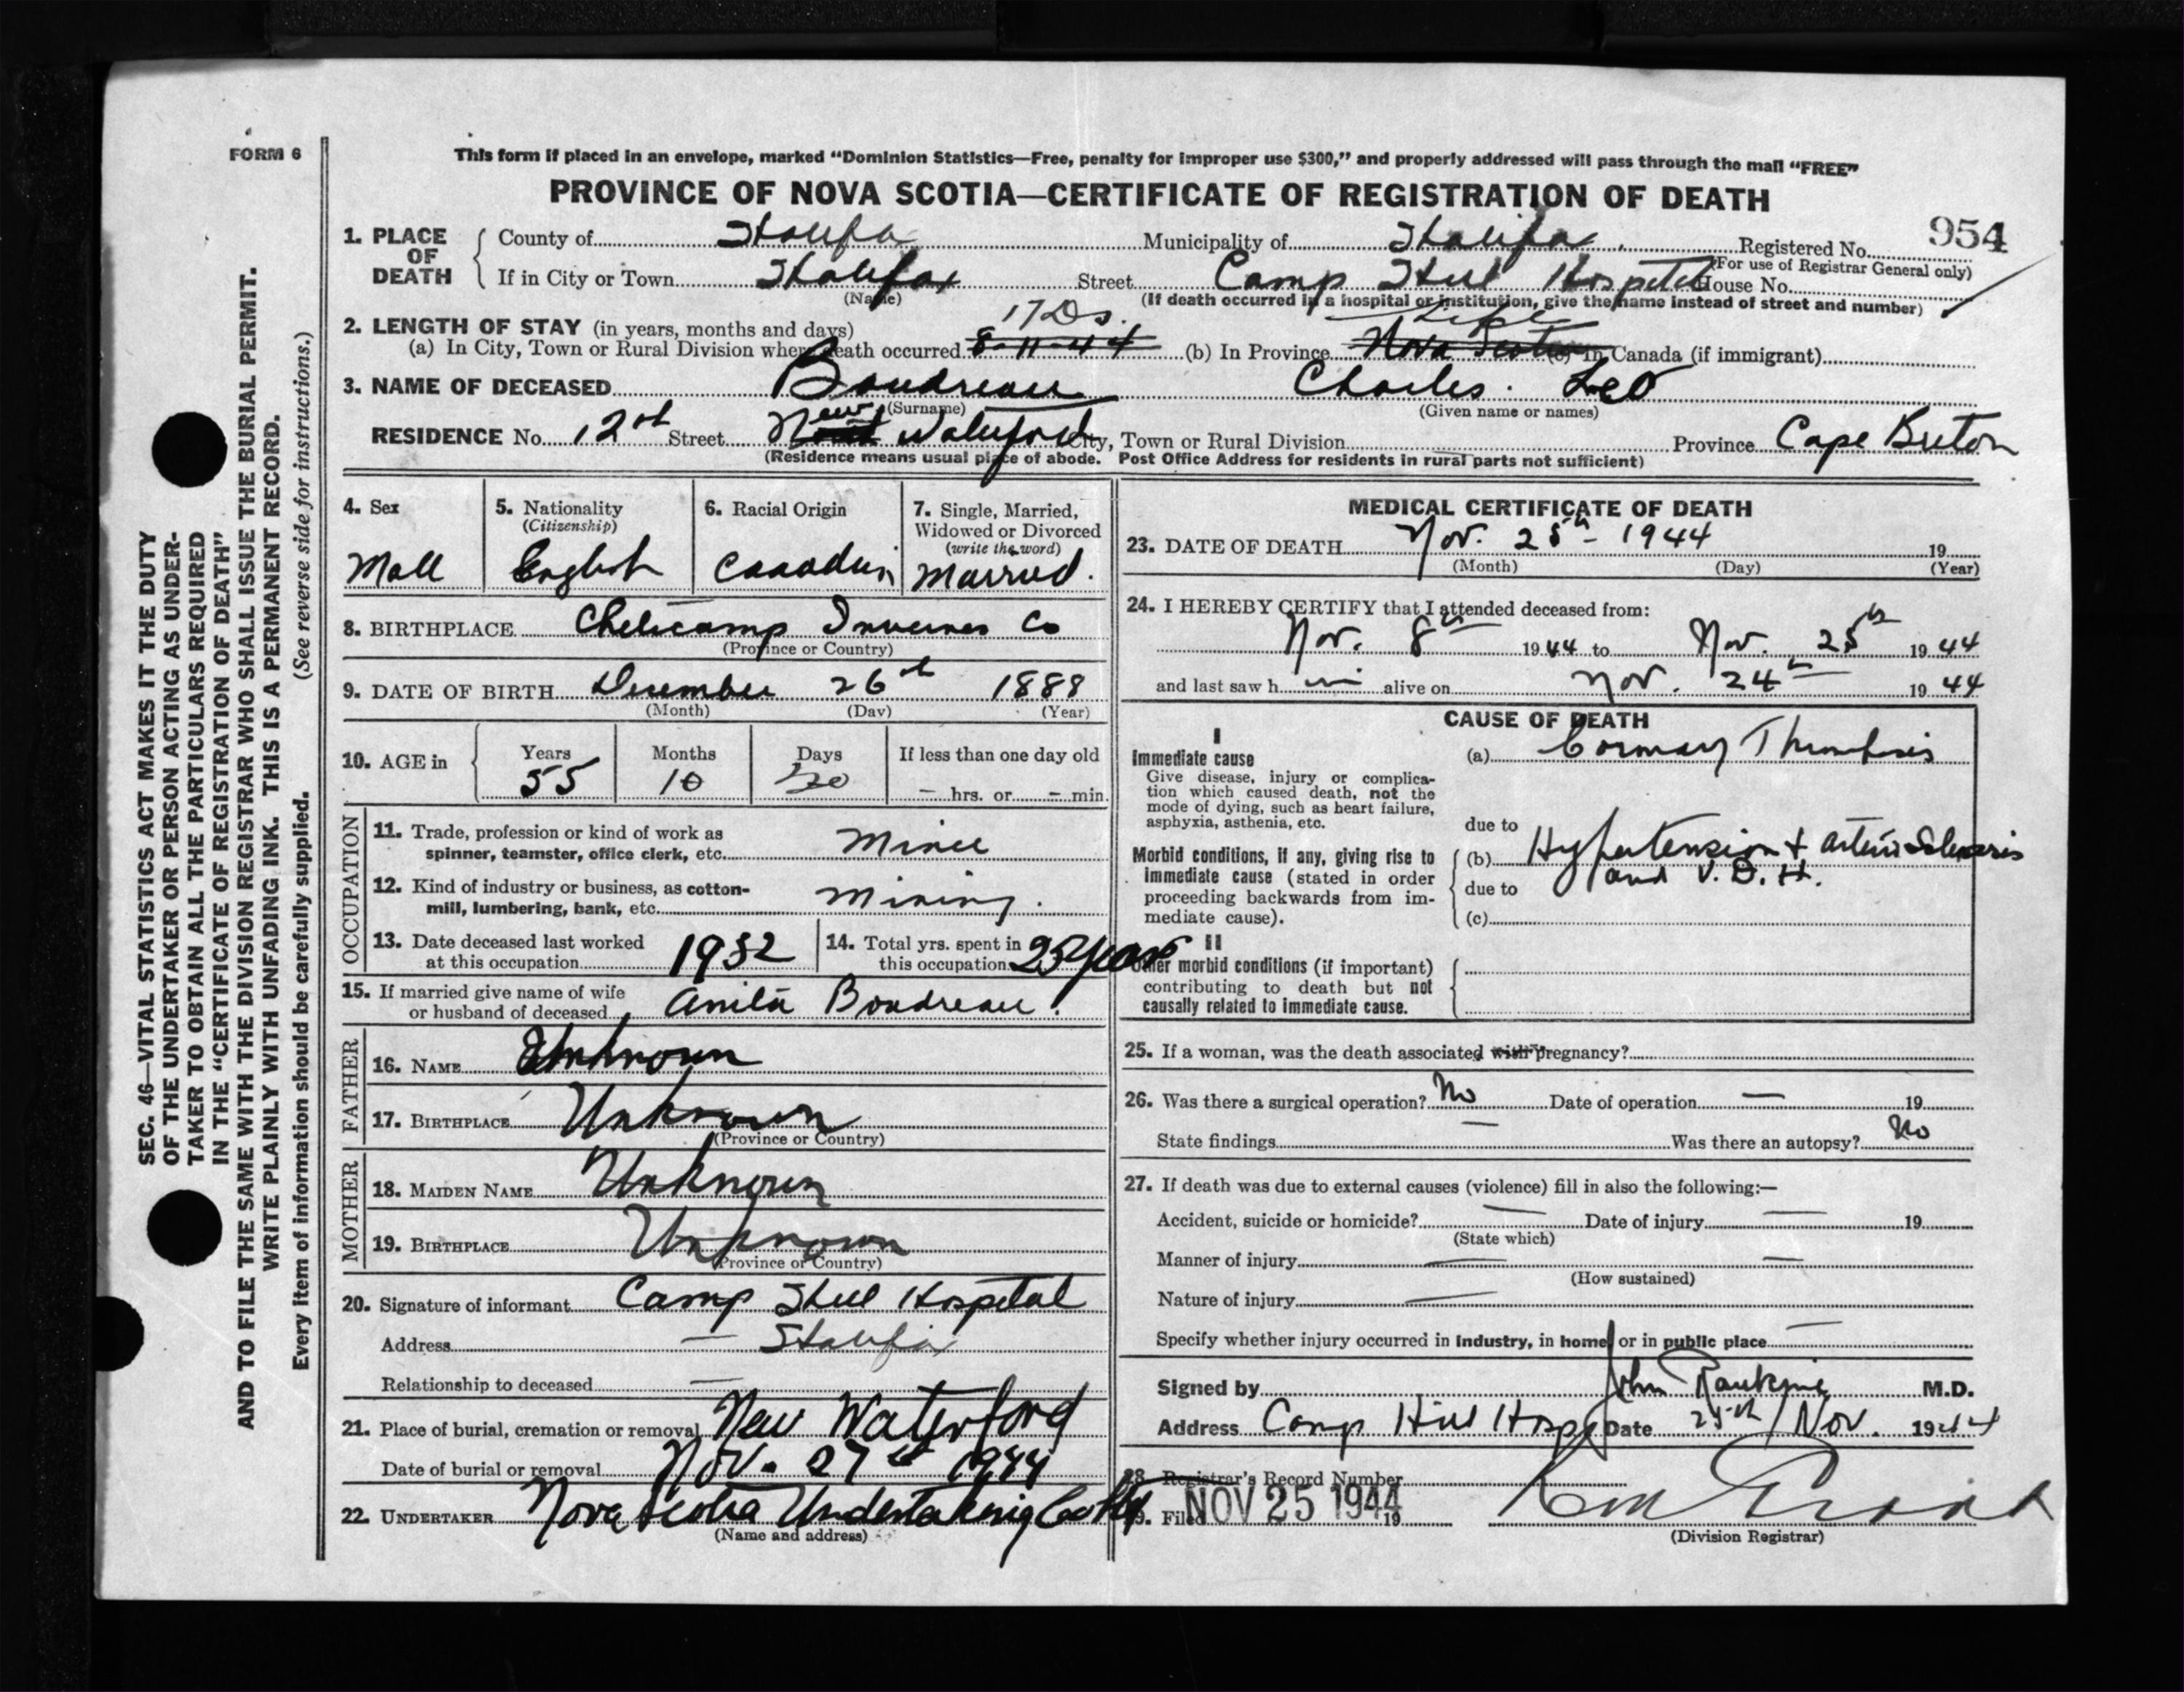 FORM 6
This form if placed in an envelope, marked "Dominion Statistics—Free, penalty for improper use $300," and properly addressed will pass through the mail "FREE"
PROVINCE OF NOVA SCOTIA—CERTIFICATE OF REGISTRATION OF DEATH
954
1. PLACE OF DEATH
County of Halifax Municipality of Halifax Registered No.
(For use of Registrar General only)
If in City or Town Halifax Street Camp Hill Hospital House No.
(Name) (If death occurred in a hospital or institution, give the name instead of street and number)
2. LENGTH OF STAY (in years, months and days) 17 Ds. Life
(a) In City, Town or Rural Division where death occurred 8-11-44 (b) In Province Nova Scotia (c) In Canada (if immigrant)
3. NAME OF DECEASED Boudreau Charles Leo
(Surname) (Given name or names)
RESIDENCE No. 12th Street New Waterford City, Town or Rural Division Province Cape Breton
(Residence means usual place of abode. Post Office Address for residents in rural parts not sufficient)
4. Sex
Male
5. Nationality
(Citizenship)
English
6. Racial Origin
Canadian
7. Single, Married,
Widowed or Divorced
(write the word)
Married.
8. BIRTHPLACE Cheticamp Inverness Co
(Province or Country)
9. DATE OF BIRTH December 26th 1888
(Month) (Day) (Year)
10. AGE in
Years 55
Months 10
Days 30
If less than one day old
— hrs. or — min.
OCCUPATION
11. Trade, profession or kind of work as
spinner, teamster, office clerk, etc. Miner
12. Kind of industry or business, as cotton-
mill, lumbering, bank, etc. Mining.
13. Date deceased last worked
at this occupation 1932
14. Total yrs. spent in
this occupation 25 years
15. If married give name of wife
or husband of deceased Anita Boudreau.
FATHER
16. NAME Unknown
17. BIRTHPLACE Unknown
(Province or Country)
MOTHER
18. MAIDEN NAME Unknown
19. BIRTHPLACE Unknown
(Province or Country)
20. Signature of informant Camp Hill Hospital
Address — Halifax
Relationship to deceased —
21. Place of burial, cremation or removal New Waterford
Date of burial or removal Nov. 27th 1944
22. UNDERTAKER Nova Scotia Undertaking Co
(Name and address)
MEDICAL CERTIFICATE OF DEATH
23. DATE OF DEATH Nov. 25th - 1944 19
(Month) (Day) (Year)
24. I HEREBY CERTIFY that I attended deceased from:
Nov. 8th 1944 to Nov. 25th 1944
and last saw h im alive on Nov. 24th 1944
CAUSE OF DEATH
I
Immediate cause
Give disease, injury or complica-
tion which caused death, not the
mode of dying, such as heart failure,
asphyxia, asthenia, etc.
(a) Coronary Thrombosis
due to
Morbid conditions, if any, giving rise to
immediate cause (stated in order
proceeding backwards from im-
mediate cause).
(b) Hypertension + Arterio Sclerosis
due to and V. D. H.
(c)
II
Other morbid conditions (if important)
contributing to death but not
causally related to immediate cause.
25. If a woman, was the death associated with pregnancy?
26. Was there a surgical operation? No Date of operation — 19
State findings — Was there an autopsy? No
27. If death was due to external causes (violence) fill in also the following:—
Accident, suicide or homicide? — Date of injury — 19
(State which)
Manner of injury — —
(How sustained)
Nature of injury —
Specify whether injury occurred in industry, in home, or in public place —
Signed by John Rankine M.D.
Address Camp Hill Hosp Date 25th Nov. 1944
28. Registrar's Record Number
29. Filed NOV 25 1944 19
(Division Registrar)
SEC. 46—VITAL STATISTICS ACT MAKES IT THE DUTY
OF THE UNDERTAKER OR PERSON ACTING AS UNDER-
TAKER TO OBTAIN ALL THE PARTICULARS REQUIRED
IN THE "CERTIFICATE OF REGISTRATION OF DEATH"
AND TO FILE THE SAME WITH THE DIVISION REGISTRAR WHO SHALL ISSUE THE BURIAL PERMIT.
WRITE PLAINLY WITH UNFADING INK. THIS IS A PERMANENT RECORD.
Every item of information should be carefully supplied. (See reverse side for instructions.)